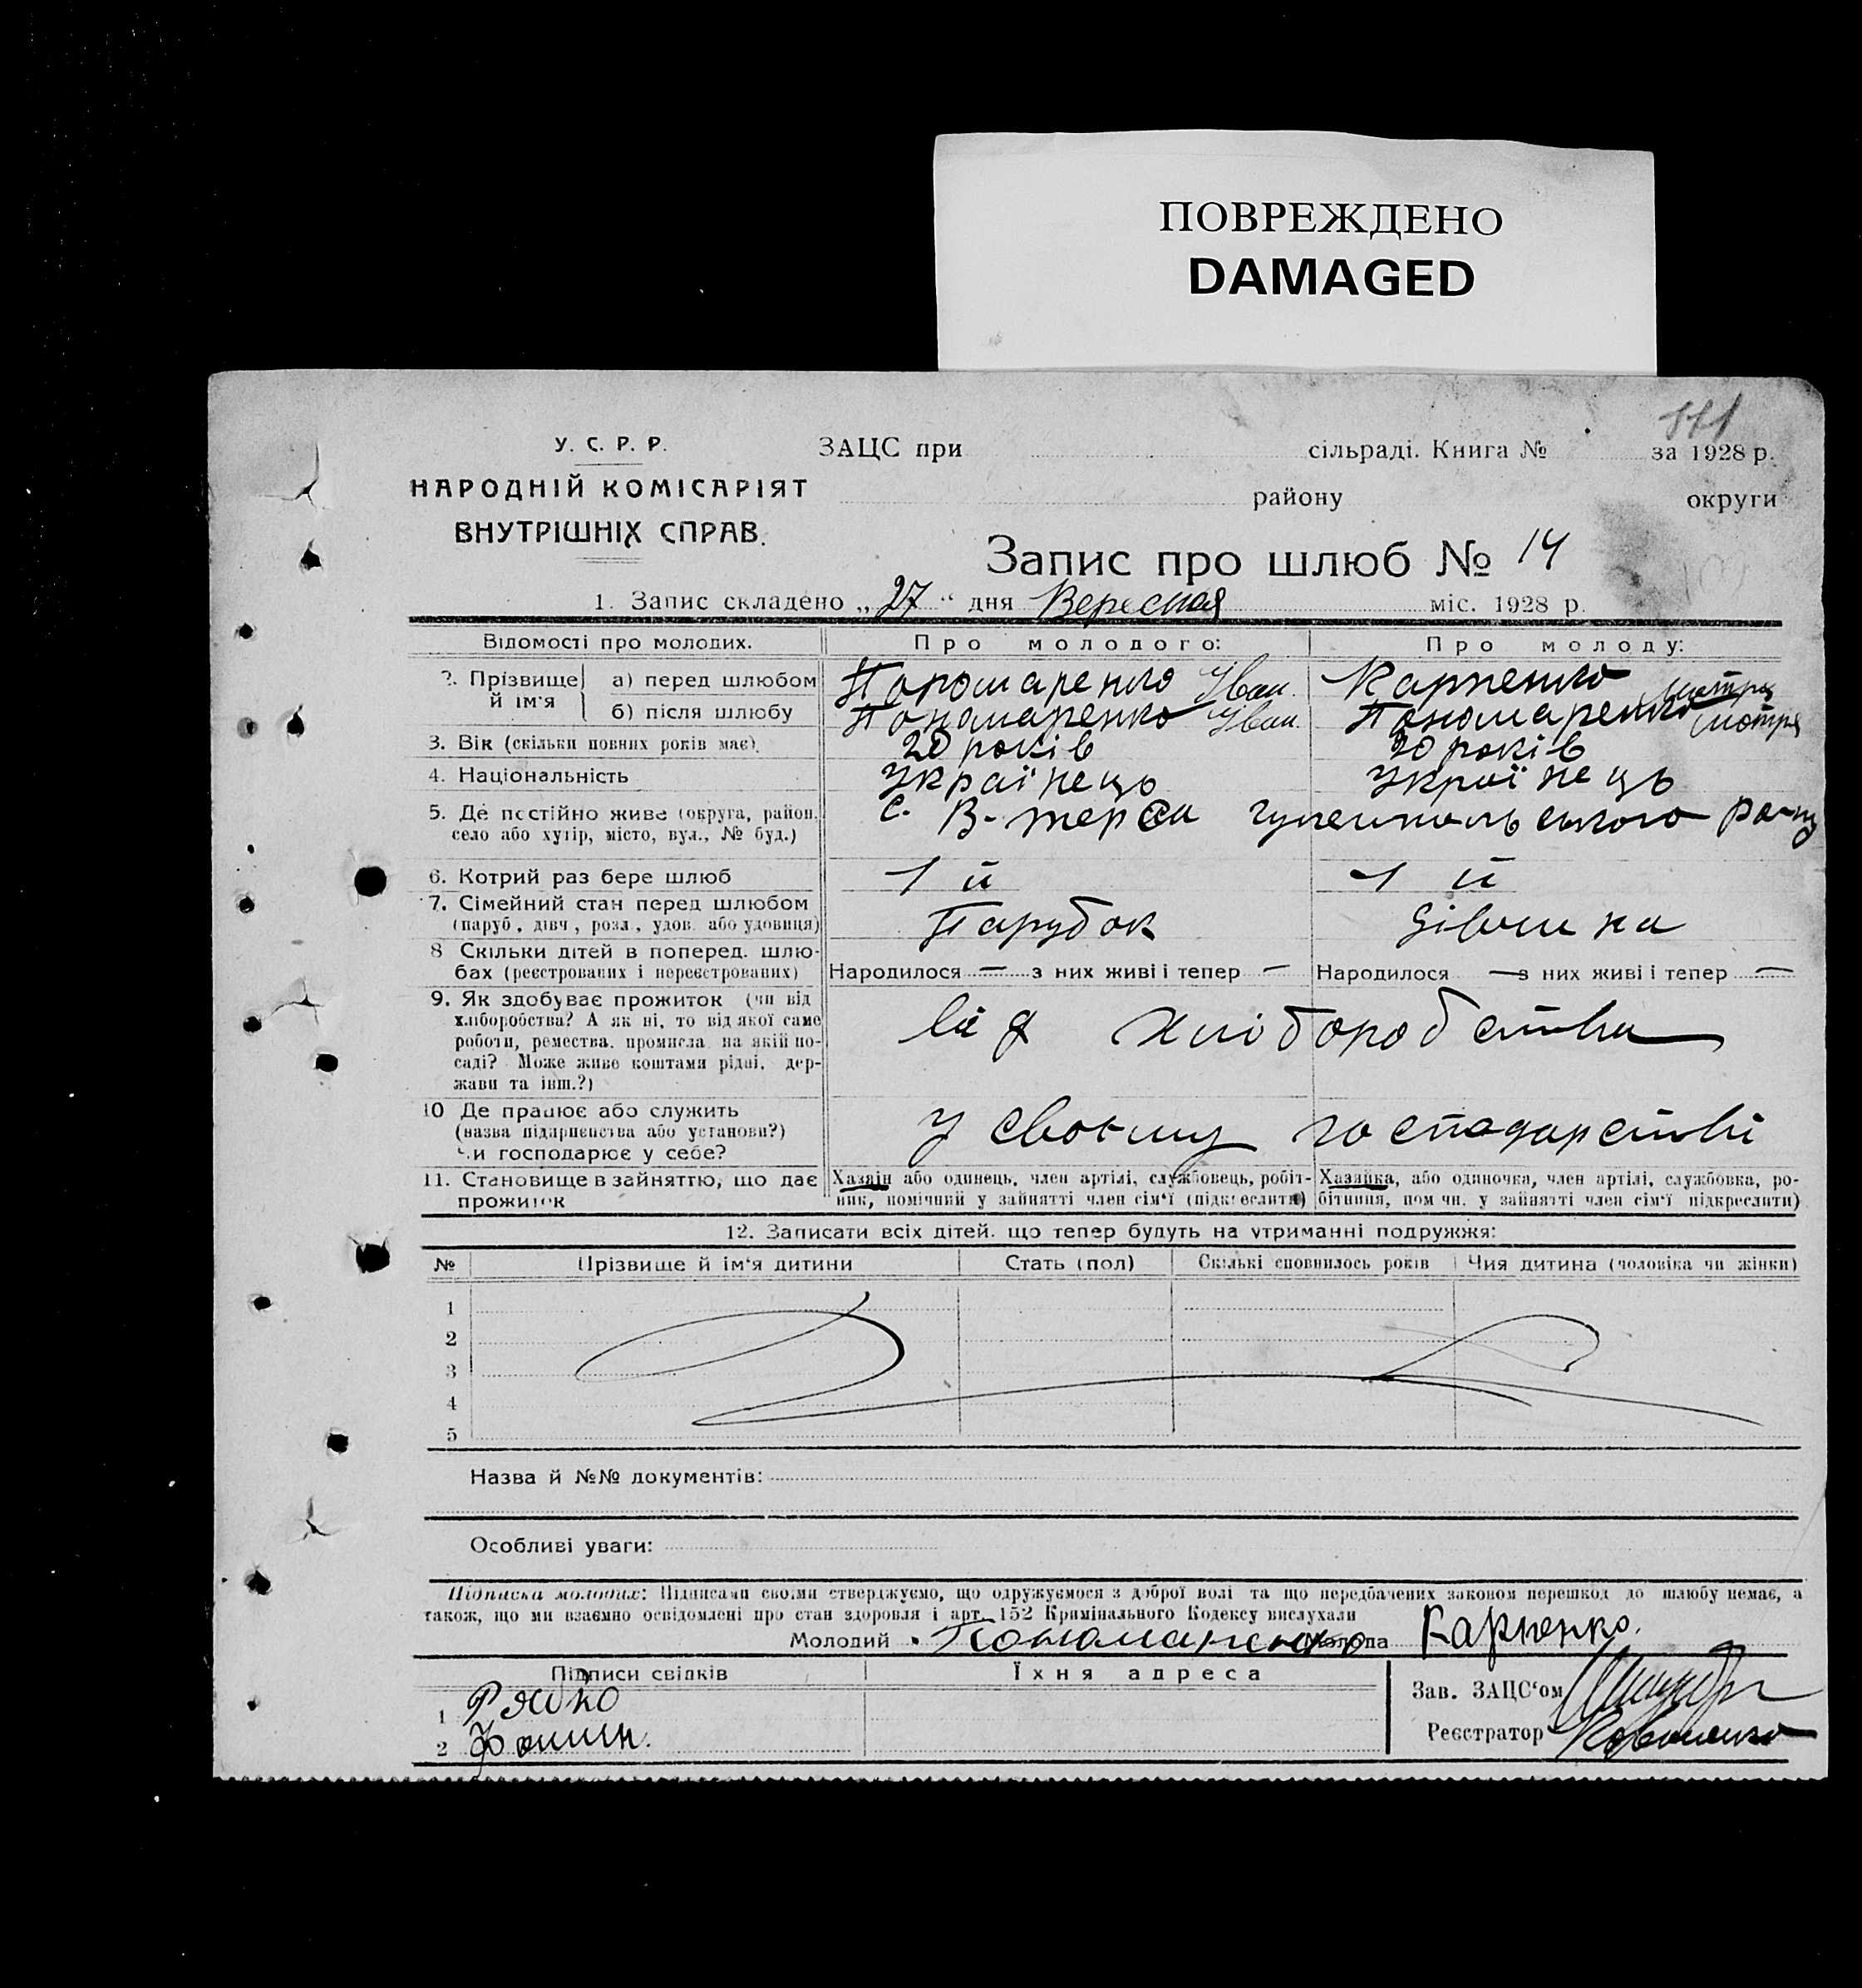 ПОВРЕЖДЕНО
DAMAGED
У. С. Р. Р.
НАРОДНІЙ КОМІСАРІЯТ
ВНУТРІШНІХ СПРАВ.
ЗАЦС при сільраді. Книга № за 1928 р.
району округи
Запис про шлюб № 14
1. Запис складено „27“ дня Вересня міс. 1928 р.
Відомості про молодих. Про молодого: Про молоду:
2. Прізвище й ім'я а) перед шлюбом Пономаренко Іван. Карпенко Мотря
б) після шлюбу Пономаренко Іван. Пономаренко Мотря
3. Вік (скільки повних років має). 20 років 20 років
4. Національність Українець Українець
5. Де постійно живе (округа, район, село або хутір, місто, вул., № буд.) с. В-терса гуляйпольського р-ну
6. Котрий раз бере шлюб 1 й 1 й
7. Сімейний стан перед шлюбом Парубок Дівчина
(паруб., дівч., розл., удов. або удовиця)
8 Скільки дітей в поперед. шлю-
бах (реєстрованих і нереєстрованих) Народилося — з них живі і тепер — Народилося — з них живі і тепер —
9. Як здобуває прожиток (чи від
хліборобства? А як ні, то від якої саме
роботи, ремества, промисла, на якій по-
саді? Може живе коштами рідні, дер-
жави та інш.?)
від хліборобства
10 Де працює або служить
(назва підприємства або установи?)
Чи господарює у себе?
у своєму господарстві
11. Становище в зайняттю, що дає
прожиток
Хазяїн або одинець, член артілі, службовець, робіт-
ник, помічний у зайнятті член сім'ї (підкреслити)
Хазяйка, або одиночка, член артілі, службовка, ро-
бітниця, помічн. у зайнятті член сім'ї підкреслити)
12. Записати всіх дітей, що тепер будуть на утриманні подружжя:
№ Прізвище й ім'я дитини Стать (пол) Скількі сповнилось років Чия дитина (чоловіка чи жінки)
1
2
3
4
5
Назва й №№ документів:
Особливі уваги:
Підписка молодих: Підписами своїми стверджуємо, що одружуємося з доброї волі та що передбачених законом перешкод до шлюбу немає, а
також, що ми взаємно освідомлені про стан здоровля і арт. 152 Кримінального Кодексу вислухали
Молодий Пономаренко Молода Карпенко.
Підписи свідків Їхня адреса
1 Рябко
2 Фомин.
Зав. ЗАЦС'ом
Реєстратор